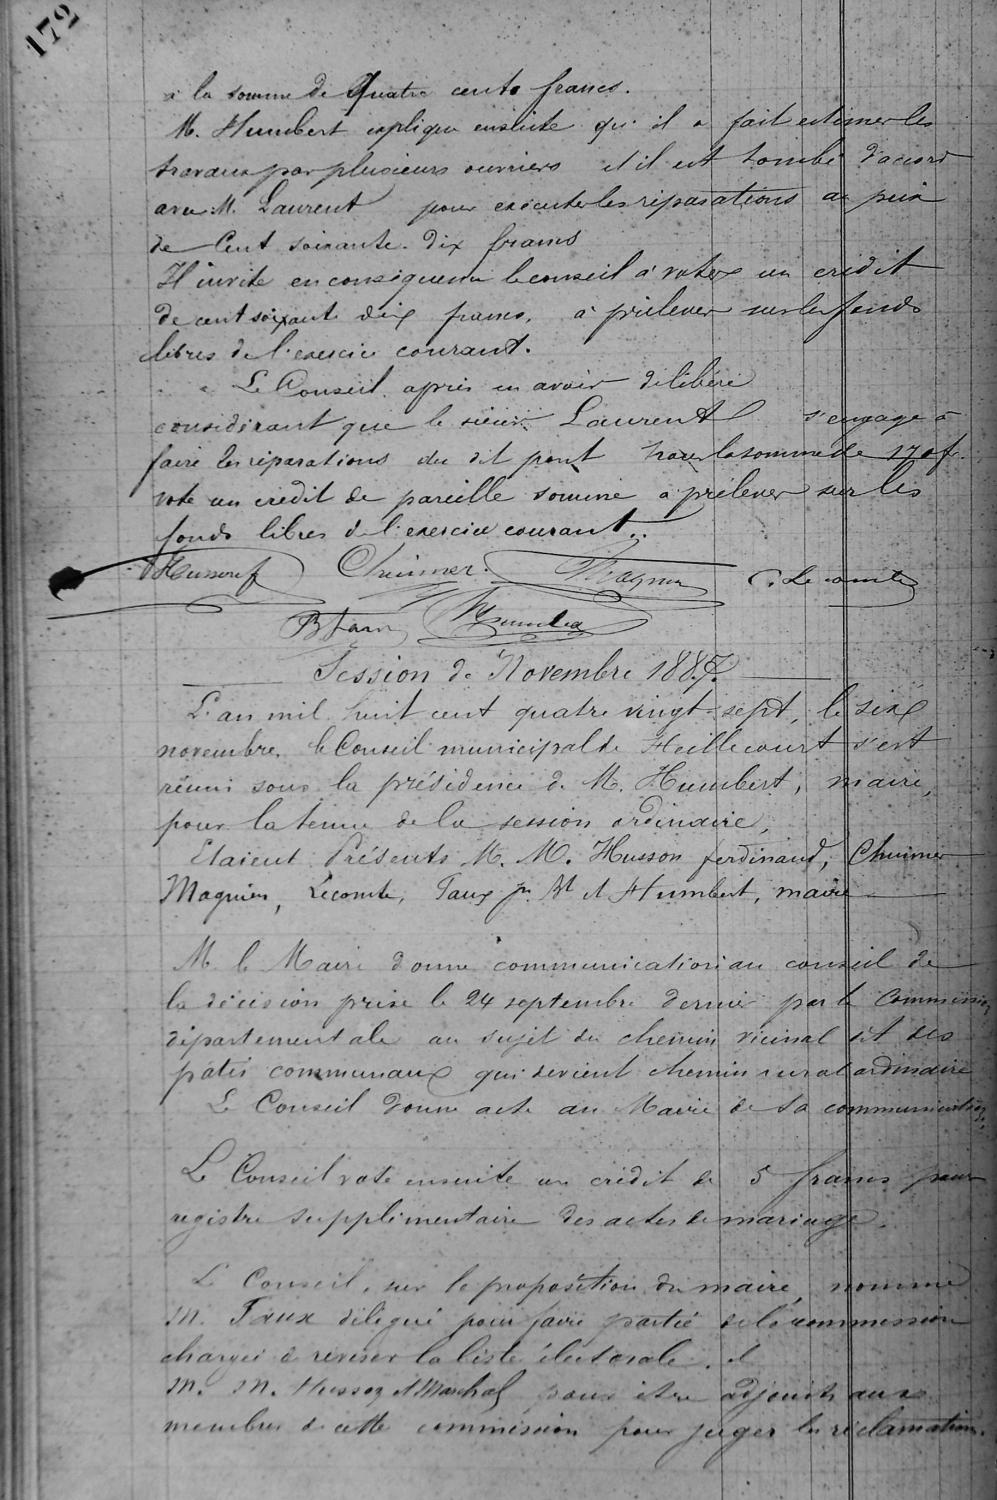 172
à la somme de Quatre cents francs.
M. Humbert explique ensuite qu'il a fait estimer les
travaux par plusieurs ouvriers et il est tombé d'accord
avec M. Laurent pour exécuter les réparations au prix
de Cent soixante-dix francs
Il invite en conséquence le conseil à voter un crédit
de cent soixante dix francs, à prélever sur les fonds
libres de l'exercice courant.
Le Conseil, après en avoir délibéré
considérant que le sieur Laurent s'engage à
faire les réparations du dit pont pour la somme de 170 f.
vote un crédit de pareille somme à prélever sur les
fonds libres de l'exercice courant.
Chuimer. Magnier C. Lecomte
Humbert
Session de Novembre 1887.
L'an mil huit cent quatre vingt-sept, le six
novembre, le Conseil municipal de Heillecourt s'est
réuni sous la présidence de M. Humbert, maire,
pour la tenue de la session ordinaire,
Etaient Présents M. M. Husson ferdinand, Chuimer
Magnier, Lecomte, Taux et Humbert, maire
M le Maire donne communication au conseil de
la décision prise le 24 septembre dernier par la Commission
départementale au sujet du chemin vicinal dit des
pâtis communaux qui devient chemin rural ordinaire
Le Conseil donne acte au Maire de sa communication.
Le Conseil vote ensuite un crédit de 5 francs pour
registre supplémentaire des actes de mariage.
Le Conseil, sur la proposition du maire, nomme
M. Taux délégué pour faire partie de la commission
chargée de reviser la liste électorale, et
M. M. Husson et Marchal pour être adjoints aux
membres de cette commission pour juger les réclamations.